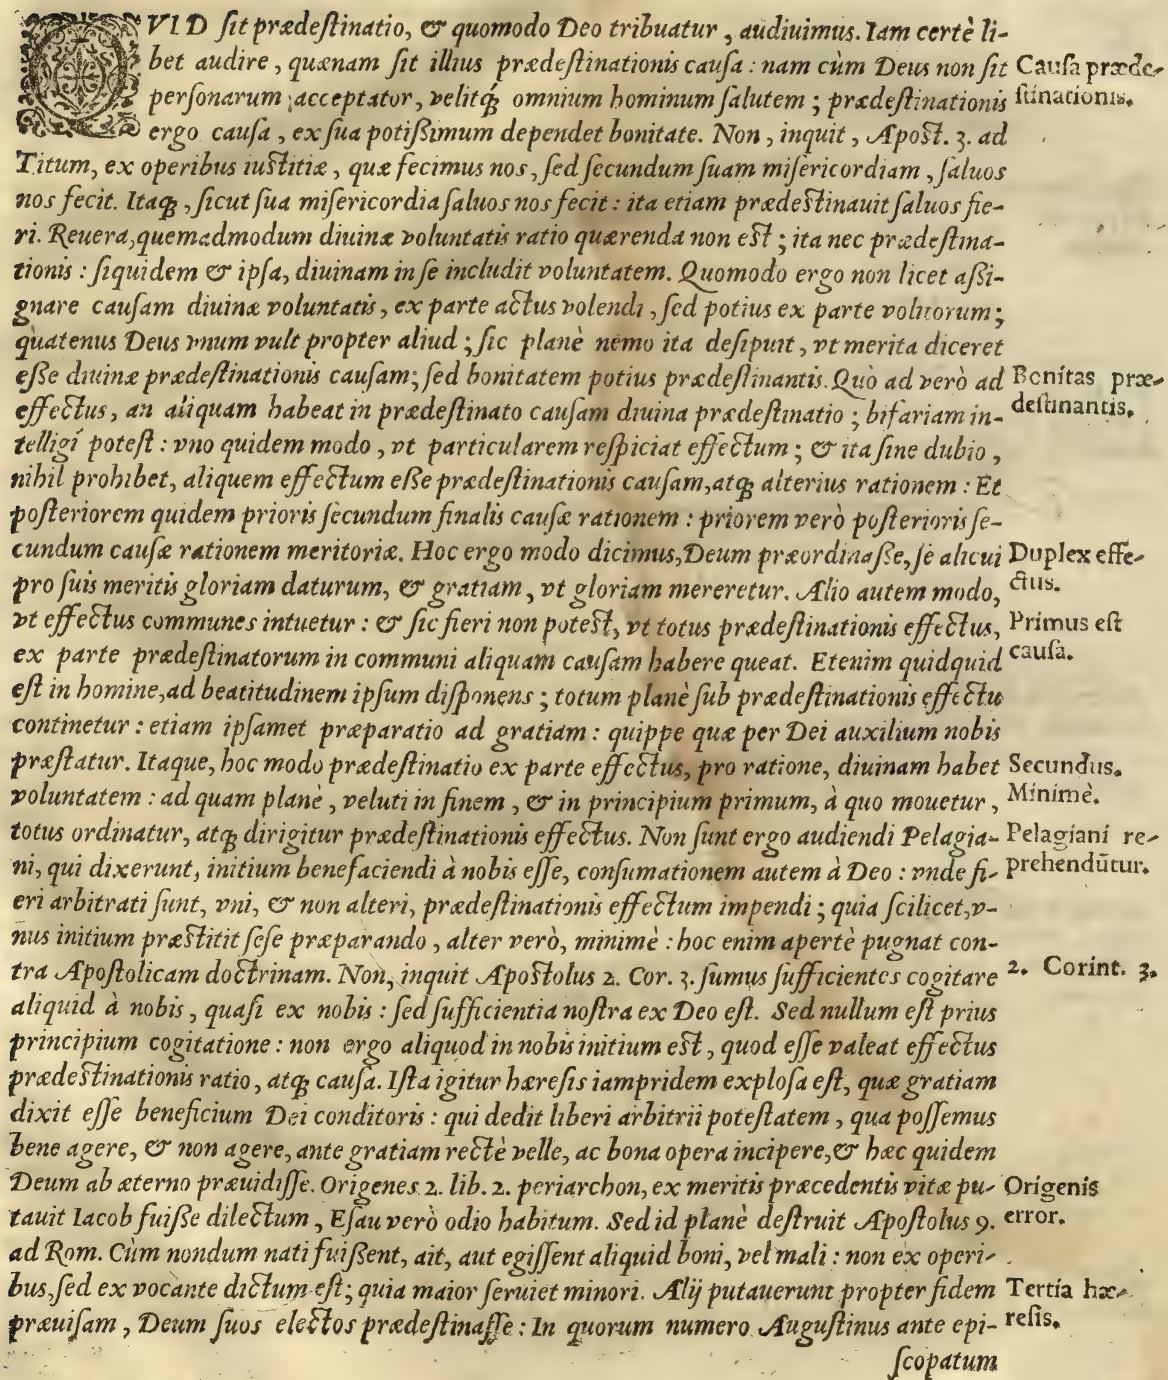 QVID ſit prædeſtinatio, & quomodo Deo tribuatur, audiuimus. Iam certè li-
bet audire, quænam ſit illius prædeſtinationis cauſa: nam cùm Deus non ſit
perſonarum acceptator, velitq́; omnium hominum ſalutem; prædeſtinationis
ergo cauſa, ex ſua potiſsimum dependet bonitate. Non, inquit, Apoſt. 3. ad
Titum, ex operibus iuſtitiæ, quæ fecimus nos, ſed ſecundum ſuam miſericordiam, ſaluos
nos fecit. Itaq;, ſicut ſua miſericordia ſaluos nos fecit: ita etiam prædeſtinauit ſaluos fie-
ri. Reuera, quemadmodum diuinæ voluntatis ratio quærenda non eſt; ita nec prædeſtina-
tionis: ſiquidem & ipſa, diuinam in ſe includit voluntatem. Quomodo ergo non licet aſsi-
gnare cauſam diuinæ voluntatis, ex parte actus volendi, ſed potius ex parte volitorum;
quatenus Deus vnum vult propter aliud; ſic planè nemo ita deſipuit, vt merita diceret
eſſe diuinæ prædeſtinationis cauſam; ſed bonitatem potius prædeſtinantis. Quò ad verò ad
effectus, an aliquam habeat in prædeſtinato cauſam diuina prædeſtinatio; bifariam in-
telligi poteſt: vno quidem modo, vt particularem reſpiciat effectum; & ita ſine dubio,
nihil prohibet, aliquem effectum eſſe prædeſtinationis cauſam, atq; alterius rationem: Et
poſteriorem quidem prioris ſecundum finalis cauſæ rationem: priorem verò poſterioris ſe-
cundum cauſæ rationem meritoriæ. Hoc ergo modo dicimus, Deum præordinaſſe, ſe alicui
pro ſuis meritis gloriam daturum, & gratiam, vt gloriam mereretur. Alio autem modo,
vt effectus communes intuetur: & ſic fieri non poteſt, vt totus prædeſtinationis effectus,
ex parte prædeſtinatorum in communi aliquam cauſam habere queat. Etenim quidquid
eſt in homine, ad beatitudinem ipſum diſponens; totum planè ſub prædeſtinationis effectu
continetur: etiam ipſamet præparatio ad gratiam: quippe quæ per Dei auxilium nobis
præſtatur. Itaque, hoc modo prædeſtinatio ex parte effectus, pro ratione, diuinam habet
voluntatem: ad quam planè, veluti in finem, & in principium primum, à quo mouetur,
totus ordinatur, atq; dirigitur prædeſtinationis effectus. Non ſunt ergo audiendi Pelagia-
ni, qui dixerunt, initium benefaciendi à nobis eſſe, conſumationem autem à Deo: vnde fi-
eri arbitrati ſunt, vni, & non alteri, prædeſtinationis effectum impendi; quia ſcilicet, v-
nus initium præſtitit ſeſe præparando, alter verò, minimè: hoc enim apertè pugnat con-
tra Apoſtolicam doctrinam. Non, inquit Apoſtolus 2. Cor. 3. ſumus ſufficientes cogitare
aliquid à nobis, quaſi ex nobis: ſed ſufficientia noſtra ex Deo eſt. Sed nullum eſt prius
principium cogitatione: non ergo aliquod in nobis initium eſt, quod eſſe valeat effectus
prædeſtinationis ratio, atq; cauſa. Iſta igitur hæreſis iampridem exploſa eſt, quæ gratiam
dixit eſſe beneficium Dei conditoris: qui dedit liberi arbitrii poteſtatem, qua poſſemus
bene agere, & non agere, ante gratiam rectè velle, ac bona opera incipere, & hæc quidem
Deum ab æterno præuidiſſe. Origenes 2. lib. 2. periarchon, ex meritis præcedentis vitæ pu-
tauit Iacob fuiſſe dilectum, Eſau verò odio habitum. Sed id planè deſtruit Apoſtolus 9.
ad Rom. Cùm nondum nati fuiſſent, ait, aut egiſſent aliquid boni, vel mali: non ex operi-
bus, ſed ex vocante dictum eſt; quia maior ſeruiet minori. Alij putauerunt propter fidem
præuiſam, Deum ſuos electos prædeſtinaſſe: In quorum numero Auguſtinus ante epi-
ſcopatum
Cauſa præde-
ſtinationis.
Bonitas præ-
deſtinantis.
Duplex effe-
ctus.
Primus eſt
cauſa.
Secundus.
Minimè.
Pelagiani re-
prehendūtur.
2. Corint. 3.
Origenis
error.
Tertia hæ-
reſis.